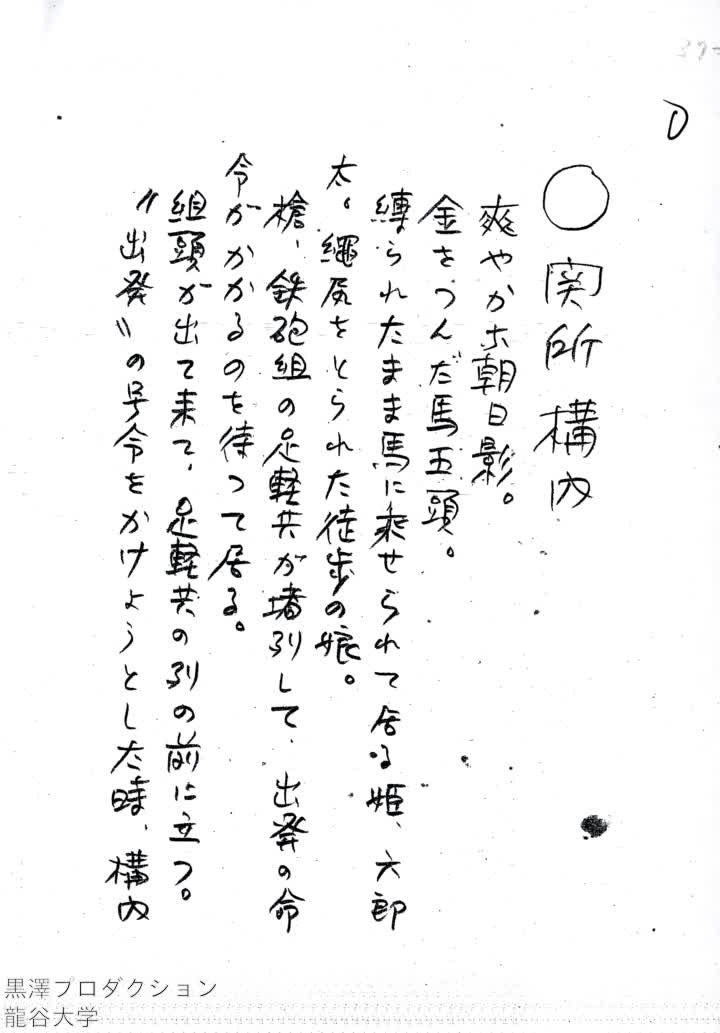 D
○ 関所構内
爽やかな朝日影。
金をつんだ馬五頭。
縛られたまま馬に乗せられて居る姫、六郎
太。縄尻をとられた徒歩の娘。
槍、鉄砲組の足軽共が堵列して、出発の命
令がかかるのを待つて居る。
組頭が出て来て、足軽共の列の前に立つ。
〝出発〟の号令をかけようとした時、構内
黒澤プロダクション
龍谷大学